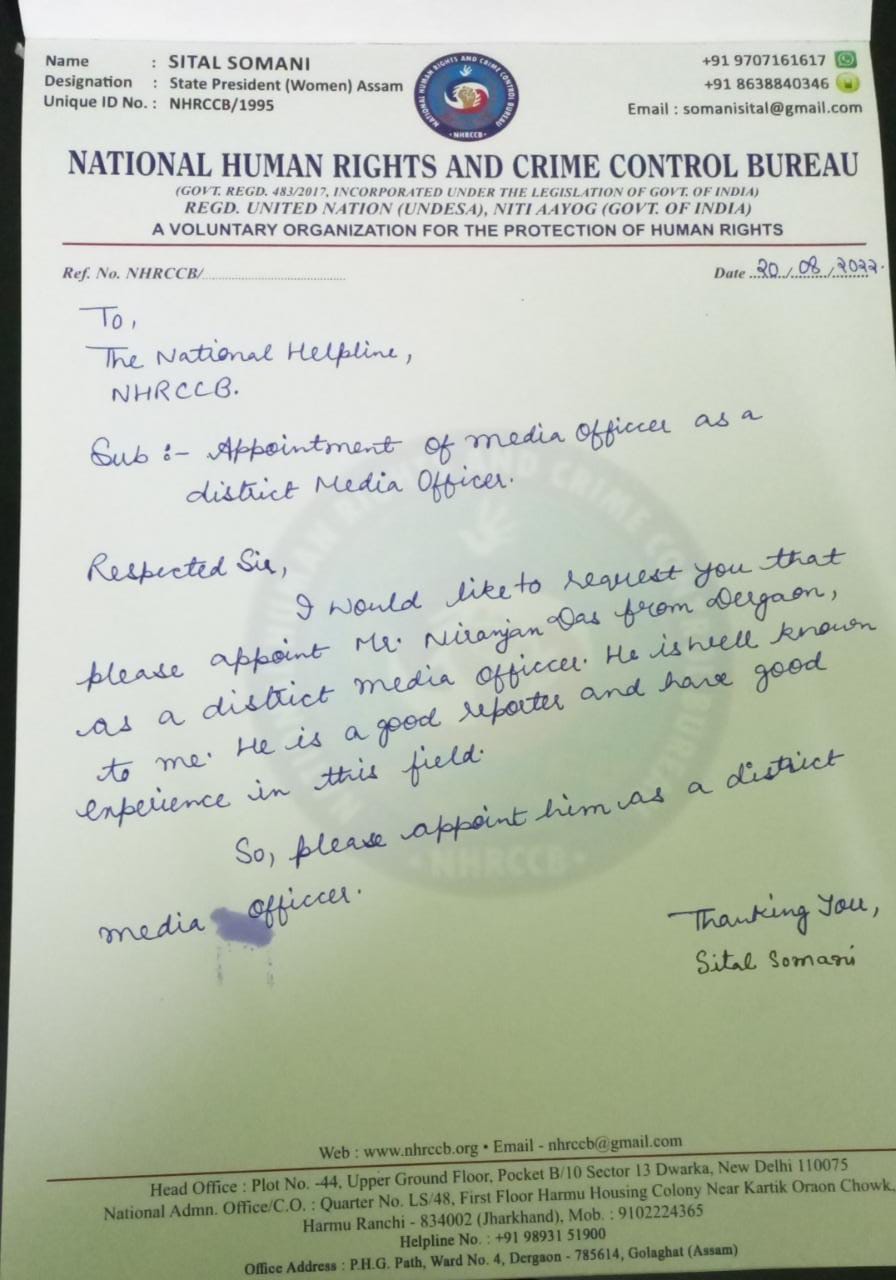 Name : SITAL SOMANI
Designation : State President (Women) Assam
Unique ID No. : NHRCCB/1995
NATIONAL HUMAN RIGHTS AND CRIME CONTROL BUREAU
· NHRCCB ·
+91 9707161617
+91 8638840346
Email : somanisital@gmail.com
NATIONAL HUMAN RIGHTS AND CRIME CONTROL BUREAU
(GOVT. REGD. 483/2017, INCORPORATED UNDER THE LEGISLATION OF GOVT. OF INDIA)
REGD. UNITED NATION (UNDESA), NITI AAYOG (GOVT. OF INDIA)
A VOLUNTARY ORGANIZATION FOR THE PROTECTION OF HUMAN RIGHTS
Ref. No. NHRCCB/
Date 20/08/2022.
To,
The National Helpline,
NHRCCB.
Sub :- Appointment of media Officcer as a
district Media Officer.
Respected Sir,
I would like to request you that
please appoint Mr. Niranjan Das from Dergaon,
as a district media officcer. He is well known
to me. He is a good reporter and have good
experience in this field.
So, please appoint him as a district
media officcer.
Thanking You,
Sital Somani
Web : www.nhrccb.org • Email - nhrccb@gmail.com
Head Office : Plot No. -44, Upper Ground Floor, Pocket B/10 Sector 13 Dwarka, New Delhi 110075
National Admn. Office/C.O. : Quarter No. LS/48, First Floor Harmu Housing Colony Near Kartik Oraon Chowk,
Harmu Ranchi - 834002 (Jharkhand), Mob. : 9102224365
Helpline No. : +91 98931 51900
Office Address : P.H.G. Path, Ward No. 4, Dergaon - 785614, Golaghat (Assam)